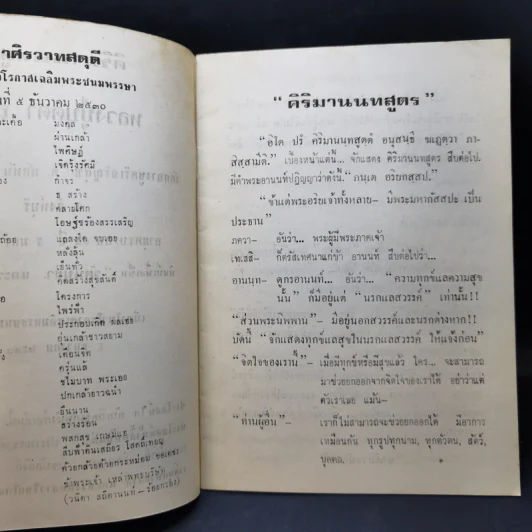 าศิรวาทสดุดี
โรกาสเฉลิมพระชนมพรรษา
ที่ ๕ ธันวาคม ๒๕๓๐
มงคล
ผ่านเกล้า
ไพศิษฏ์
เจิดรุ้งรัศมี
กำจร
ธ สร้าง
คลายโศก
โอษฐ์ซร้องสรรเสริญ
แถลงใด จบเอย
หลั่งล้น
เย็นทั่ว
คดีสร้างสุขสันต์
โครงการ
ไพร่ฟ้า
ประกอบเกิด ผลเฮย
ยุ่นเกล้าชาวสยาม
เดือนจิต
ครุ่นแล้
ขไมบาท พระเอย
ปกเกล้ายาวฉนำ
ยืนนาน
สว่างร้อน
พลกสุข เกษมแท้
สืบฟ้าดินเสถียร
ด้วยกล้าด้วยกระหม่อม ขอเดชะ
ข้าพระเจ้า เหล่าพุทธบริษัท
“ คิริมานนทสูตร ”
“อิโต ปรํ คิริมานนฺทสุตฺตํ อนุสนฺธึ ฆเฏตฺวา ภา-
สิสฺสามิติ.” เบื้องหน้าแต่นี้... จักแสดง คิริมานนทสูตร สืบต่อไป.
มีคำพระอานนท์ปฏิญญาว่าดังนี้. “ภนฺเต อริยกสฺสป.”
“ข้าแต่พระอริยเจ้าทั้งหลาย– มีพระมหากัสสปะ เป็น
ประธาน”
ภควา– อันว่า... พระผู้มีพระภาคเจ้า
เท.สสิ– ก็ตรัสเทศนาแก่ข้า อานนท์ สืบต่อไปว่า...
อานนฺท– ดูกรอานนท์... อันว่า... “ความทุกข์แลความสุข
นั้น” ก็มีอยู่แต่ “นรกแลสวรรค์” เท่านั้น!!
“ส่วนพระนิพพาน”– มีอยู่นอกสวรรค์และนรกต่างหาก!!
บัดนี้ “จักแสดงทุกข์แลสุขในนรกแลสวรรค์ ให้แจ้งก่อน”
“จิตใจของเรานี้”– เมื่อมีทุกข์หรือมีสุขแล้ว ใคร... จะสามารถ
มาช่วยยกออกจากจิตใจของเราได้ อย่าว่าแต่
ตัวเราเลย แม้น–
“ท่านผู้อื่น”– เราก็ไม่สามารถจะช่วยยกออกได้ มีอาการ
เหมือนกัน ทุกรูปทุกนาม, ทุกตัวตน, สัตว์,
บุคคล.